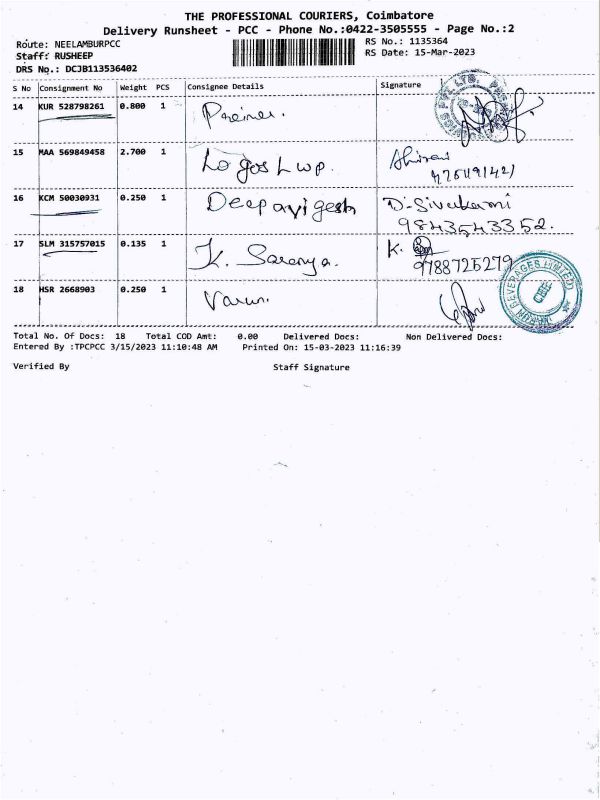 THE PROFESSIONAL COURIERS, Coimbatore
Delivery Runsheet - PCC - Phone No.:0422-3505555 - Page No.:2
Route: NEELAMBURPCC RS No.: 1135364
Staff: RUSHEEP RS Date: 15-Mar-2023
DRS No.: DCJB113536402
S No Consignment No Weight PCS Consignee Details Signature
14 KUR 528798261 0.800 1
15 MAA 569849458 2.700 1 Logos Lwp.
16 KCM 50030931 0.250 1 Deepavigesh D. Sivakami
9843543352.
17 SLM 315757015 0.135 1 K. Saranya. K.
9788725279
18 HSR 2668903 0.250 1 Varun.
BEVERAGES LIMITED
CBE
Total No. Of Docs: 18 Total COD Amt: 0.00 Delivered Docs: Non Delivered Docs:
Entered By :TPCPCC 3/15/2023 11:10:48 AM Printed On: 15-03-2023 11:16:39
Verified By Staff Signature